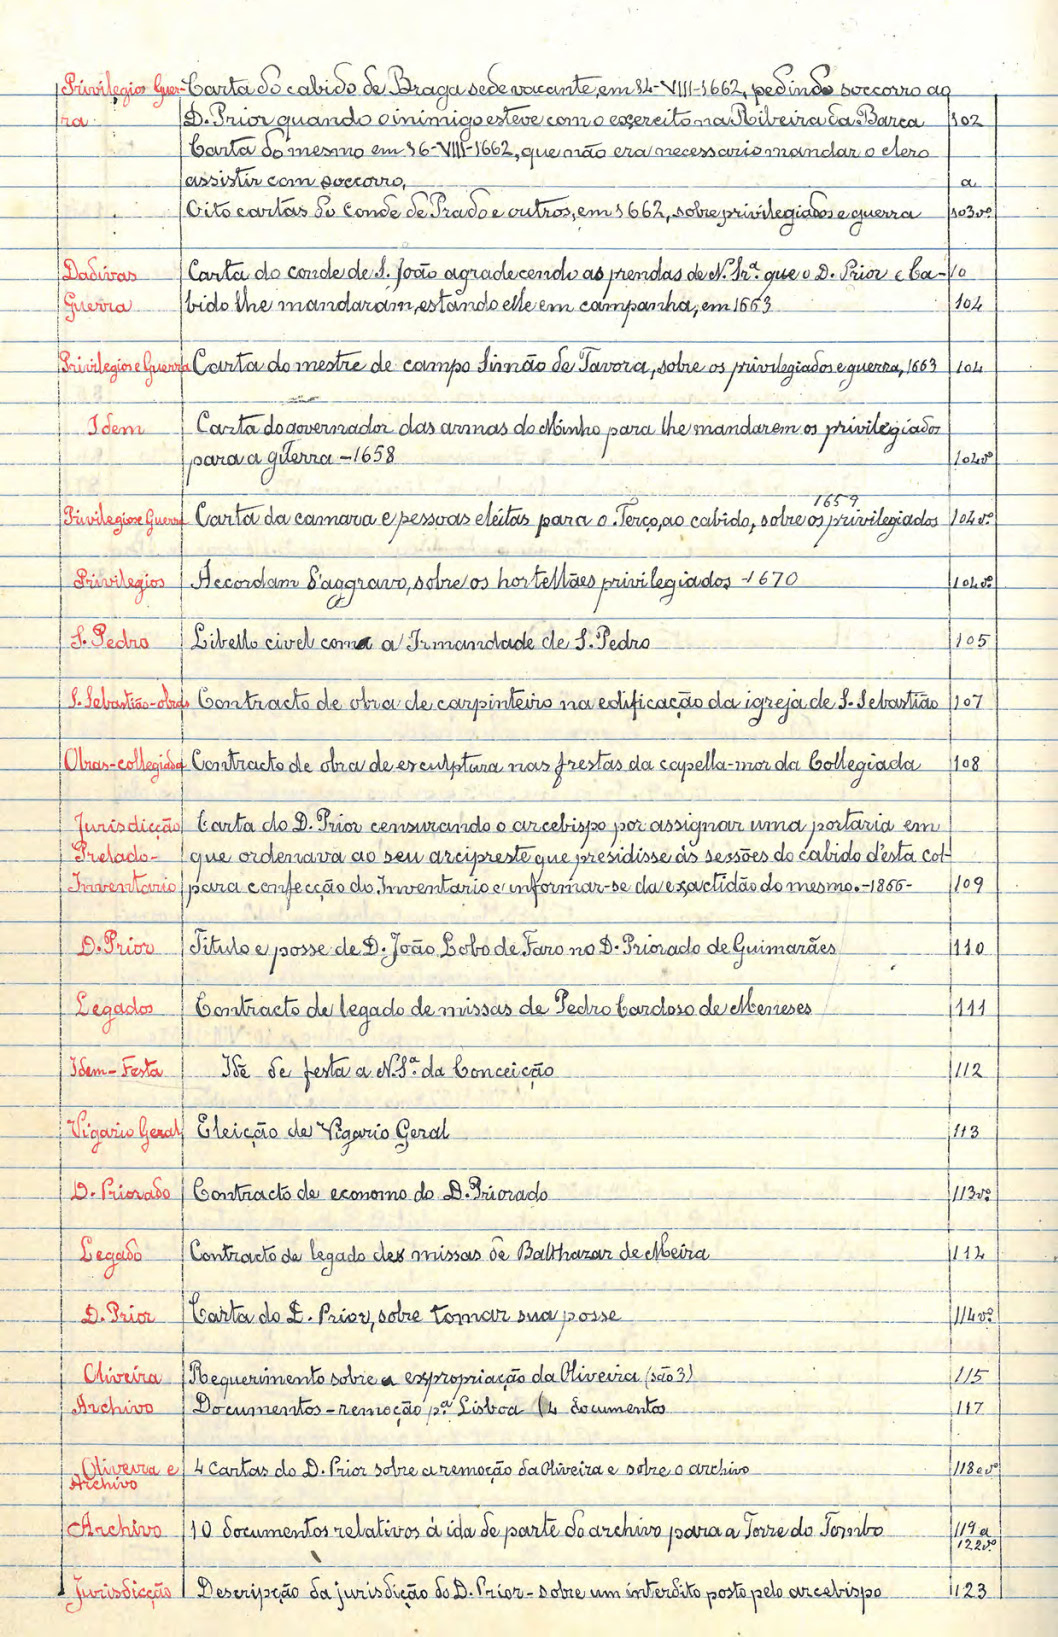 Privilegios Guer- Carta do cabido de Braga sede vacante, em 14-VIII-1662, pedindo soccorro ao
ra D. Prior quando o inimigo esteve com o exercito na Ribeira da Barca 102
Carta do mesmo em 16-VIII-1662, que não era necessario mandar o clero
assistir com soccorro, a
Oito cartas do Conde de Prado e outros, em 1662, sobre privilegiados e guerra 103vº
Dadivas Carta do conde de S. João agradecendo as prendas de N. Srª. que o D. Prior e Ca-
Guerra bido lhe mandaram, estando elle em campanha, em 1663 104
Privilegios e Guerra Carta do mestre de campo Simão de Tavora, sobre os privilegiados e guerra, 1663 104
Idem Carta do governador das armas do Minho para lhe mandarem os privilegiados
para a guerra - 1658 104vº
1659
Privilegios e Guerra Carta da camara e pessoas eleitas para o Terço, ao cabido, sobre os privilegiados 104vº
Privilegios Accordam d'aggravo, sobre os hortellães privilegiados - 1670 104vº
S. Pedro Libello civel com a Irmandade de S. Pedro 105
S. Sebastião-obras Contracto de obra de carpinteiro na edificação da igreja de S. Sebastião 107
Obras-collegiada Contracto de obra de esculptura nas frestas da capella-mor da Collegiada 108
Jurisdicção Carta do D. Prior censurando o arcebispo por assignar uma portaria em
Prelado- que ordenava ao seu arcipreste que presidisse ás sessões do cabido d'esta col-
Inventario para confecção do Inventario e informar-se da exactidão do mesmo. -1866- 109
D. Prior Titulo e posse de D. João Lobo de Faro no D. Priorado de Guimarães 110
Legados Contracto de legado de missas de Pedro Cardoso de Meneses 111
Idem-Festa Idê de festa a N. Sª. da Conceição 112
Vigario Geral Eleição de Vigario Geral 113
D. Priorado Contracto de economo do D. Priorado 113vº
Legado Contracto de legado des missas de Balthazar de Meira 114
D. Prior Carta do D. Prior, sobre tomar sua posse 114vº
Oliveira Requerimento sobre a expropriação da Oliveira (são 3) 115
Archivo Documentos - remoção pª Lisboa (4 documentos 117
Oliveira e 4 cartas do D. Prior sobre a remoção da Oliveira e sobre o archivo 118 e vº
Archivo
Archivo 10 documentos relativos á ida de parte do archivo para a Torre do Tombo 119 a
122vº
Jurisdicção Descripção da jurisdição do D. Prior - sobre um interdito posto pelo arcebispo 123